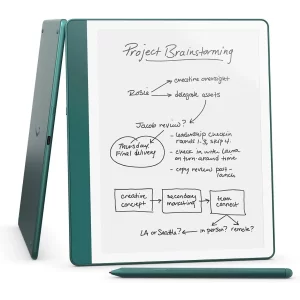 Project Brainstorming
Rosie
creative oversight
delegate assets
Jacob review?
Thursday
Final delivery
- leadership check in
rounds 1, 3, skip 4.
- check in with Laura
on turn-around time
- copy review post-
launch
creative
concept
secondary
marketing
team
connect
LA or Seattle?
in person?
remote?